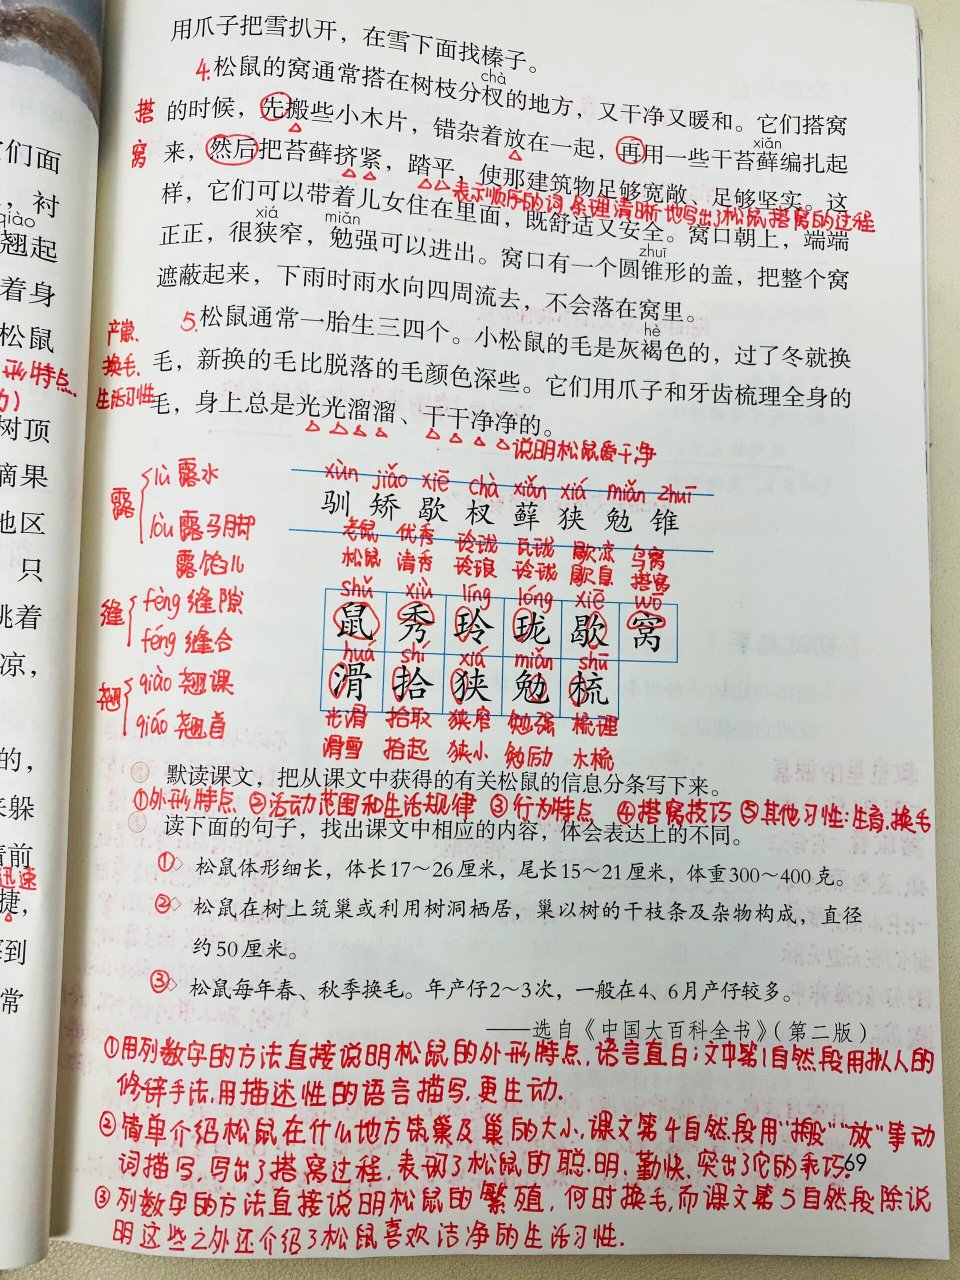 用爪子把雪扒开，在雪下面找榛子。
4.松鼠的窝通常搭在树枝分杈的地方，又干净又暖和。它们搭窝
chà
搭窝
的时候，先搬些小木片，错杂着放在一起，再用一些干苔藓编扎起
xiǎn
来，然后把苔藓挤紧，踏平，使那建筑物足够宽敞、足够坚实。这
表示顺序的词，条理清晰地写出了松鼠搭窝的过程
样，它们可以带着儿女住在里面，既舒适又安全。窝口朝上，端端
xiá miǎn
正正，很狭窄，勉强可以进出。窝口有一个圆锥形的盖，把整个窝
zhuī
遮蔽起来，下雨时雨水向四周流去，不会落在窝里。
产崽、
换毛、
生活习性
5.松鼠通常一胎生三四个。小松鼠的毛是灰褐色的，过了冬就换
hè
毛，新换的毛比脱落的毛颜色深些。它们用爪子和牙齿梳理全身的
毛，身上总是光光溜溜、干干净净的。
说明松鼠爱干净
们面
，衬
qiào
翘起
着身
松鼠
形特点.
力）
树顶
摘果
地区
只
挑着
凉，
的，
来躲
前
迅速
捷，
到
常
露
lù 露水
lòu 露马脚
露馅儿
缝
fèng 缝隙
féng 缝合
翘
qiào 翘课
qiáo 翘首
xùn jiǎo xiē chà xiǎn xiá miǎn zhuī
驯 矫 歇 杈 藓 狭 勉 锥
老鼠 优秀 玲珑 瓦珑 歇凉 鸟窝
松鼠 清秀 玲琅 玲珑 歇息 搭窝
shǔ xiù líng lóng xiē wō
鼠 秀 玲 珑 歇 窝
huá shí xiá miǎn shū
滑 拾 狭 勉 梳
光滑 拾取 狭窄 勉强 梳理
滑雪 拾起 狭小 勉励 木梳
默读课文，把从课文中获得的有关松鼠的信息分条写下来。
①外形特点 ②活动范围和生活规律 ③行为特点 ④搭窝技巧 ⑤其他习性：生育、换毛
读下面的句子，找出课文中相应的内容，体会表达上的不同。
① 松鼠体形细长，体长17～26厘米，尾长15～21厘米，体重300～400克。
② 松鼠在树上筑巢或利用树洞栖居，巢以树的干枝条及杂物构成，直径
约50厘米。
③ 松鼠每年春、秋季换毛。年产仔2～3次，一般在4、6月产仔较多。
——选自《中国大百科全书》（第二版）
①用列数字的方法直接说明松鼠的外形特点，语言直白；文中第1自然段用拟人的
修辞手法，用描述性的语言描写，更生动.
②简单介绍松鼠在什么地方筑巢及巢的大小，课文第4自然段用“搬”“放”等动
词描写，写出了搭窝过程，表现了松鼠的聪明、勤快，突出了它的乖巧.
69
③列数字的方法直接说明松鼠的繁殖，何时换毛，而课文第5自然段除说
明这些之外还介绍了松鼠喜欢洁净的生活习性.